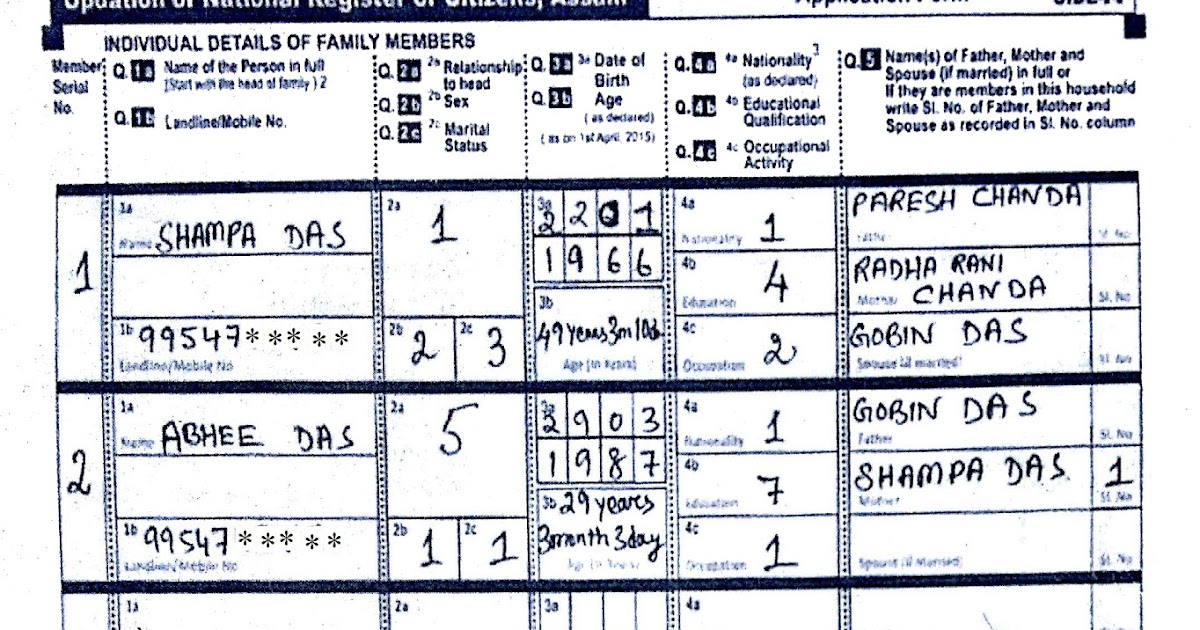 Updation of National Register of Citizens, Assam Application Form
INDIVIDUAL DETAILS OF FAMILY MEMBERS
Member Serial No.
Q. 1a Name of the Person in full
(Start with the head of family) 2
Q. 1b Landline/Mobile No.
Q. 2a 2a Relationship to head
Q. 2b 2b Sex
Q. 2c 2c Marital Status
Q. 3a 3a Date of Birth
Q. 3b Age
(as declared)
(as on 1st April, 2015)
Q. 4a 4a Nationality 3
(as declared)
Q. 4b 4b Educational Qualification
Q. 4c 4c Occupational Activity
Q. 5 Name(s) of Father, Mother and
Spouse (if married) in full or
If they are members in this household
write Sl. No. of Father, Mother and
Spouse as recorded in Sl. No. column
1
1a
Name SHAMPA DAS
1b 99547*****
Landline/Mobile No
2a 1
2b 2
2c 3
3a 2201
1966
3b
49 years 3m 10d
Age (in Years)
4a
Nationality 1
4b
Education 4
4c
Occupation 2
PARESH CHANDA
Father Sl. No
RADHA RANI
Mother CHANDA Sl. No
GOBIN DAS
Spouse (if married) Sl. No
2
1a
Name ABHEE DAS
1b 99547*****
Landline/Mobile No
2a 5
2b 1
2c 1
3a 2903
1987
3b 29 years
3month 3day
Age (in Years)
4a
Nationality 1
4b
Education 7
4c
Occupation 1
GOBIN DAS
Father Sl. No
SHAMPA DAS 1
Mother Sl. No
Spouse (if Married) Sl. No
1a 2a 3a 4a